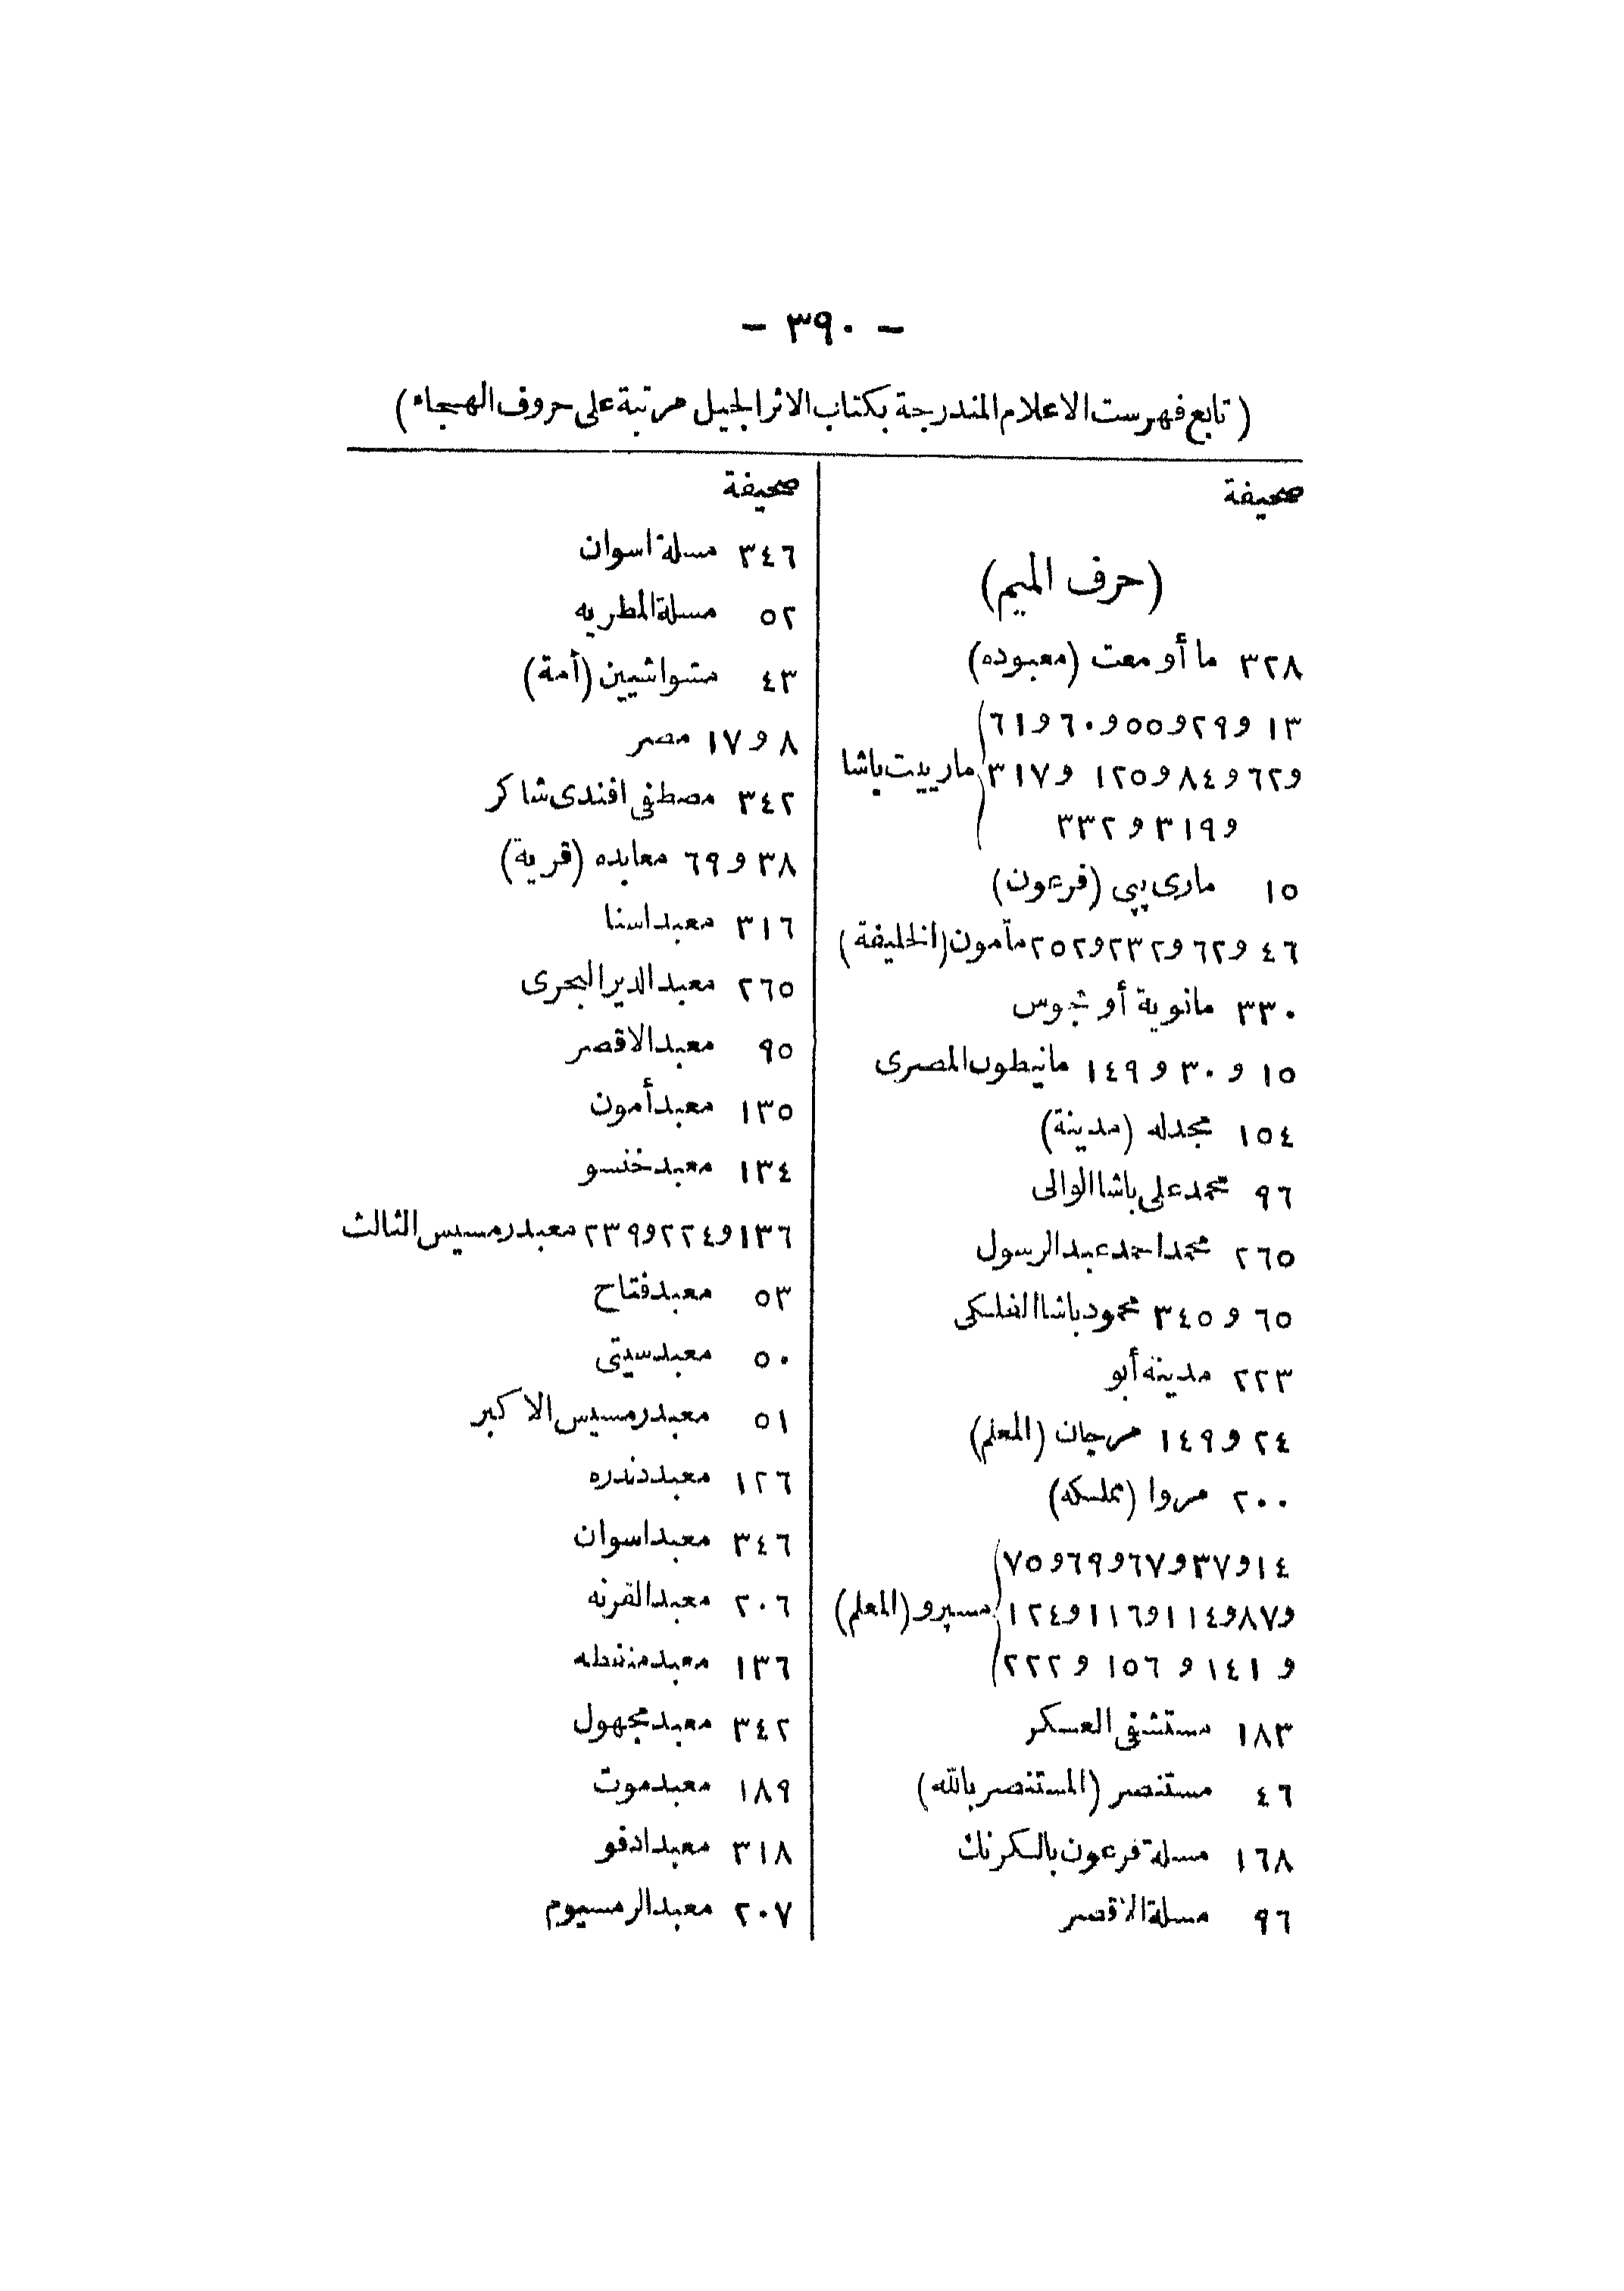 - ٣٩٠ -
(تابع فهرست الاعلام المندرجة بكتاب الاثر الجليل مرتبة على حروف الهجاء)
صحيفة
(حرف الميم)
٣٢٨ ما أو معت (معبوده)
١٣ و٢٩ و٥٥ و٦٠ و٦١
و٦٢ و٨٤ و١٢٥ و٣١٧ مارييت باشا
و٣١٩ و٣٣٢
١٥ مارى پپى (فرعون)
٤٦ و٦٢ و٢٣٢ و٢٥٢ مأمون (الخليفة)
٣٣٠ مانوية أو مجوس
١٥ و ٣٠ و ١٤٩ مانيطون المصرى
١٥٤ مجدله (مدينة)
٩٦ محمد على باشا الوالى
٢٦٥ محمد احمد عبد الرسول
٦٥ و ٣٤٥ محمود باشا الفلكى
٢٢٣ مدينة أبو
٢٤ و ١٤٩ مرجان (المعلم)
٢٠٠ مروا (مملكه)
١٤ و٣٧ و٦٧ و٦٩ و٧٥
و٨٧ و١١٤ و١١٦ و١٢٤ مسپرو (المعلم)
و ١٤١ و ١٥٦ و ٢٢٢
١٨٣ مستشفى العسكر
٤٦ مستنصر (المستنصر بالله)
١٦٨ مسلة فرعون بالكرنك
٩٦ مسلة الاقصر
صحيفة
٣٤٦ مسلة اسوان
٥٢ مسلة المطريه
٤٣ مشواشيين (أمة)
٨ و ١٧ مصر
٣٤٢ مصطفى افندى شاكر
٣٨ و ٦٩ معابده (قرية)
٣١٦ معبد اسنا
٢٦٥ معبد الدير البحرى
٩٥ معبد الاقصر
١٣٥ معبد أمون
١٣٤ معبد خنسو
١٣٦ و٢٢٤ و٢٣٩ معبد رمسيس الثالث
٥٣ معبد فتاح
٥٠ معبد سيتى
٥١ معبد رمسيس الاكبر
١٢٦ معبد دندره
٣٤٦ معبد اسوان
٢٠٦ معبد القرنه
١٣٦ معبد منقطه
٣٤٢ معبد مجهول
١٨٩ معبد موت
٣١٨ معبد ادفو
٢٠٧ معبد الرمسيوم